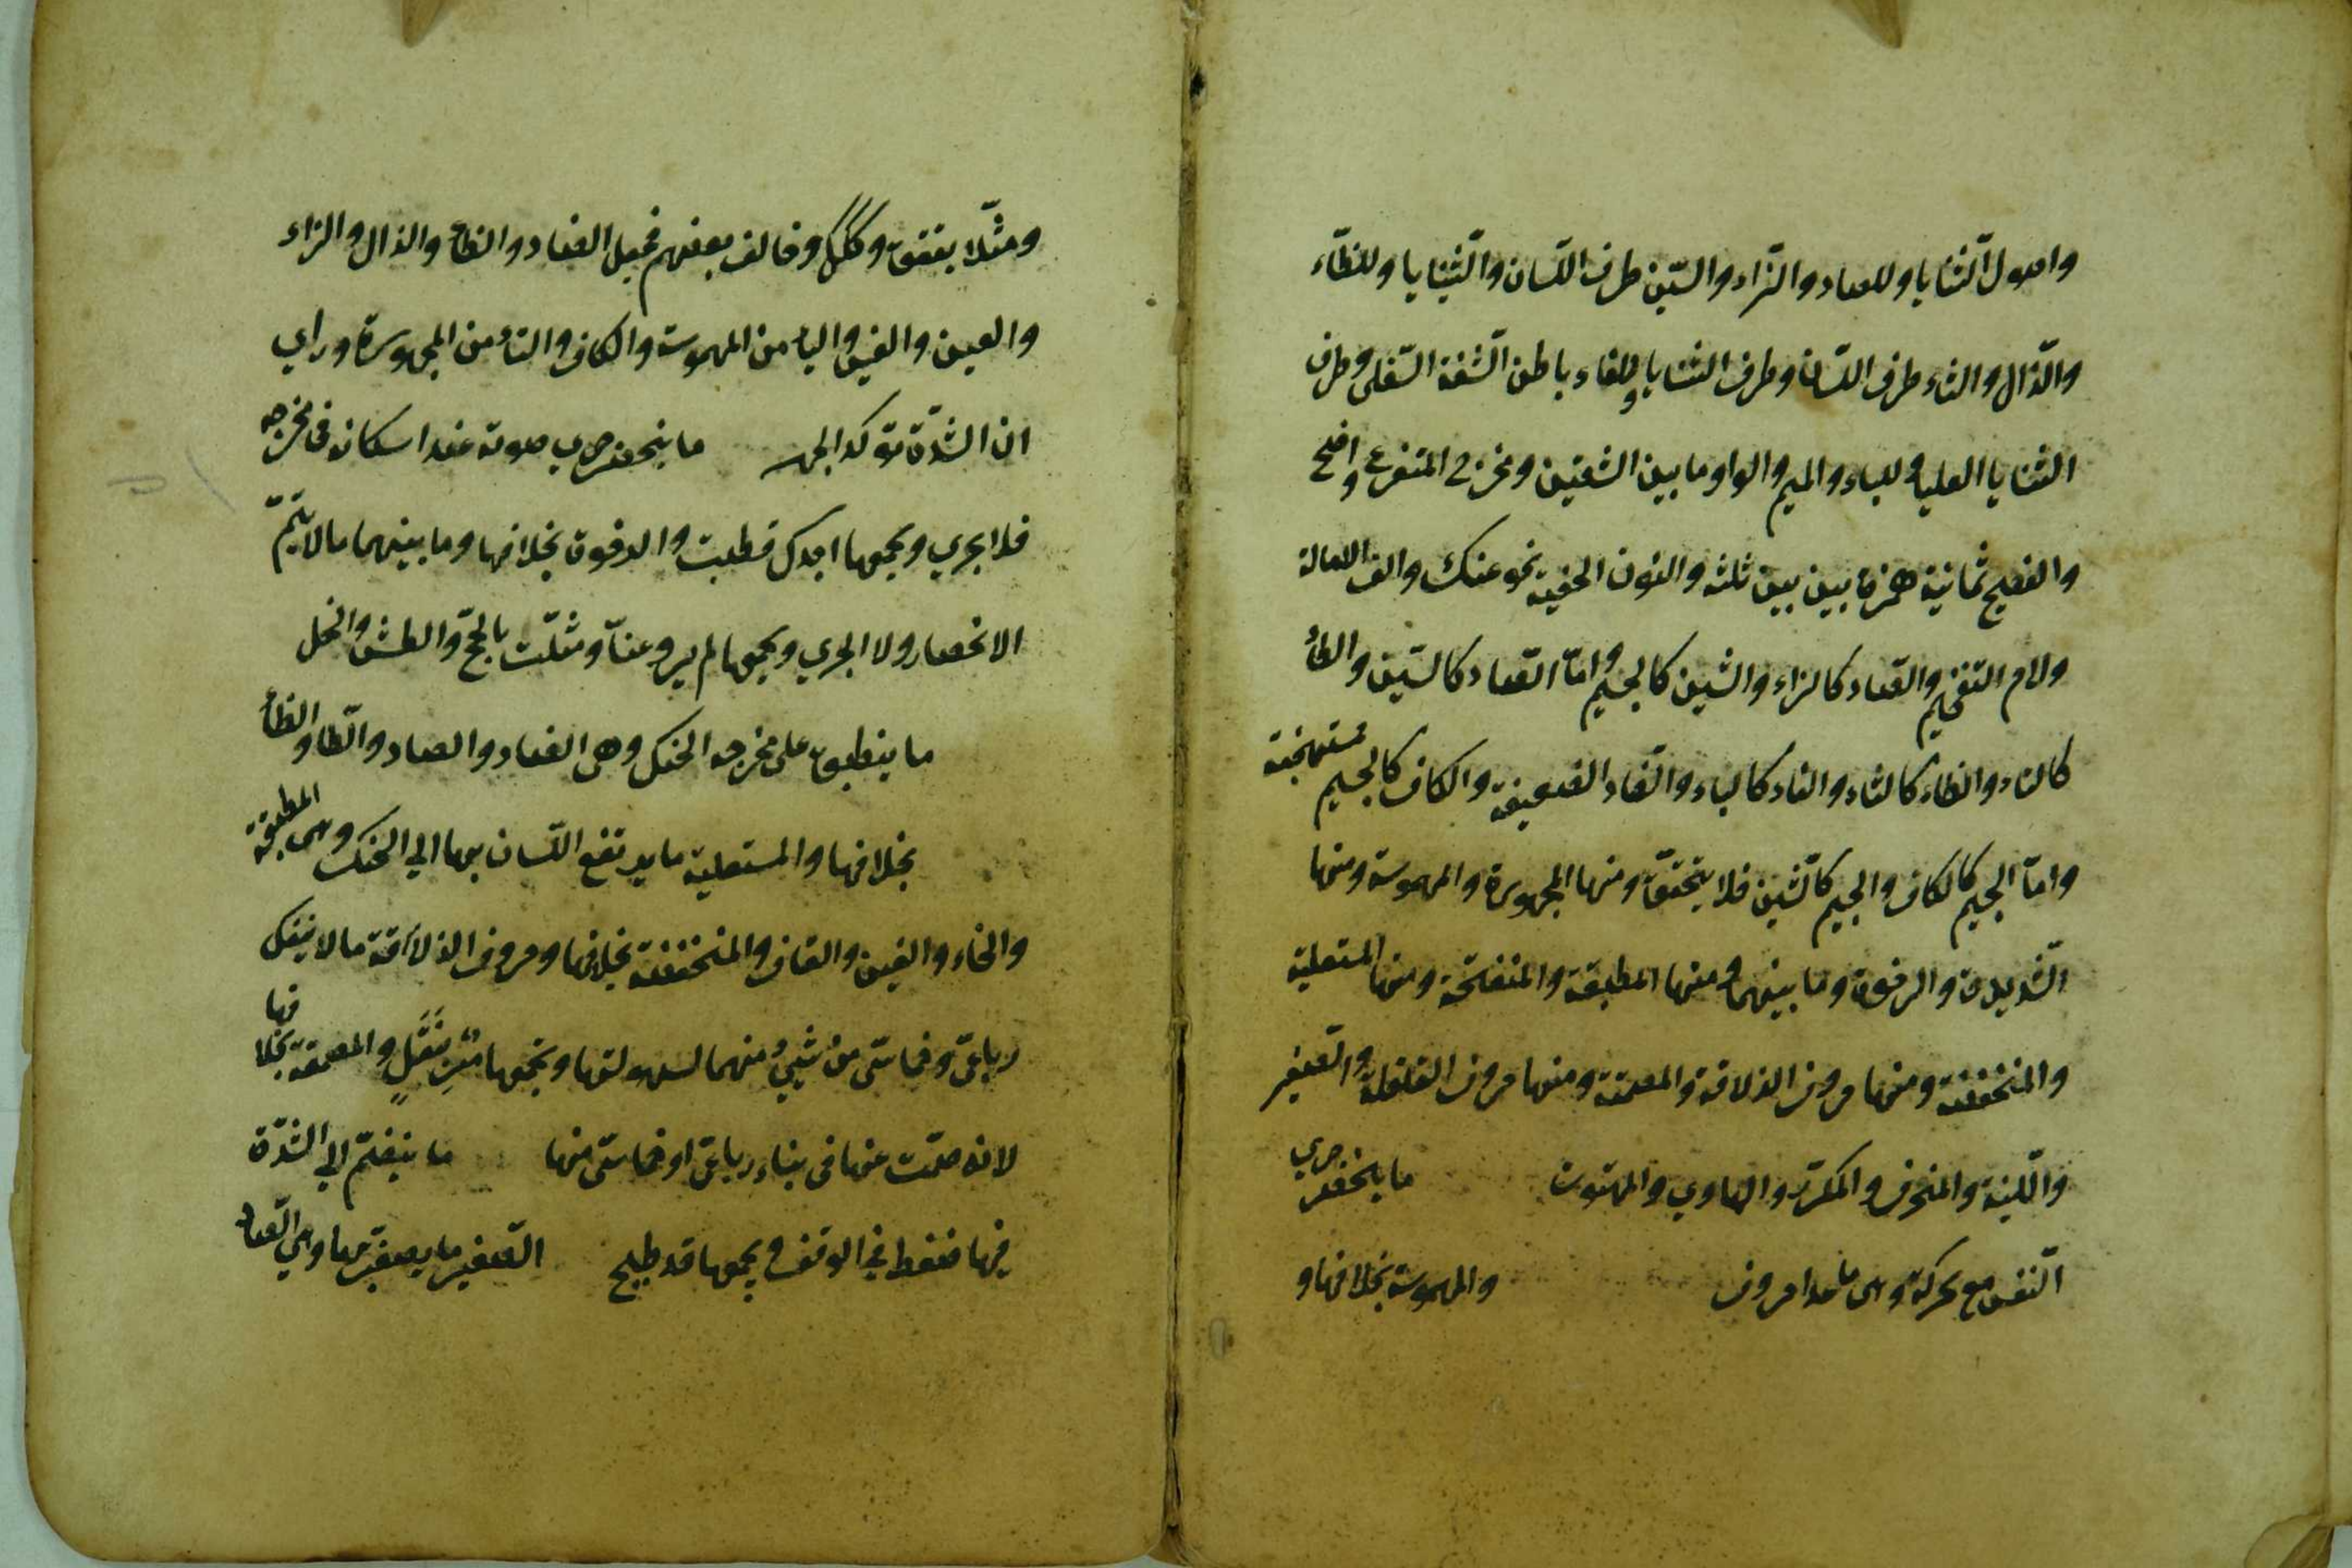 واصول الثنايا وللصاد والزاء والسين طرف اللسان والثنايا وللظاء
والذال والثاء طرف اللسان وطرف الثنايا وللفاء باطن الشفة السفلى وطرف
الثنايا العليا وللباء والميم والواو ما بين الشفتين ومخرج المتفرع واضح
والفصيح ثمانية همزة بين بين ثلثة والنون الخفية نحو عنك والف الامالة
ولام التفخيم والصاد كالزاء والشين كالجيم واما الصاد كالسين والطاء
كالتاء والظاء كالثاء والفاء كالباء والضاد الضعيفة والكاف كالجيم مستهجنة
واما الجيم كالكاف والجيم كالشين فلا يتحقق ومنها المجهورة والمهموسة ومنها
الشديدة والرخوة وما بينهما ومنها المطبقة والمنفتحة ومنها المستعلية
والمنخفضة ومنها حروف الذلاقة والمصمتة ومنها حروف القلقلة والصفير
واللينة والمنحرف والمكرر والهاوي والمهتوت ما ينحصر جري
النفس مع تحركه وهى ما عدا حروف والمهموسة بخلافها و
ومثلا بققق وككك وخالف بعضهم فجعل الضاد والظاء والذال والزاء
والعين والغين والياء من المهموسة والكاف والتاء من المجهورة وراي
ان الشدة تؤكد الجهر ما ينحصر جري صوته عند اسكانه فى مخرجه
فلا يجري ويجمعها اجدك قطبت والرخوة بخلافها وما بينهما ما لا يتم
الانحصار ولا الجري ويجمعها لم يروعنا ومثلت بالحج والطش والخل
ما ينطبق على مخرجه الحنك وهى الضاد والصاد والطاء والظاء
بخلافها والمستعلية ما يرتفع اللسان بها الي الحنك وهى المطبقة
والخاء والغين والقاف والمنخفضة بخلافها وحروف الذلاقة ما لا ينفك
رباعي وخماسي من شيئ منهما لسهولتها ويجمعها مر بنفل والمصمتة بخلافها
لانه صمت عنها فى بناء رباعي او خماسي منها ما ينضم الي الشدة
فيها ضغط في الوقف ويجمعها قد طبج الصفير ما يصفر بها وهي الصاد